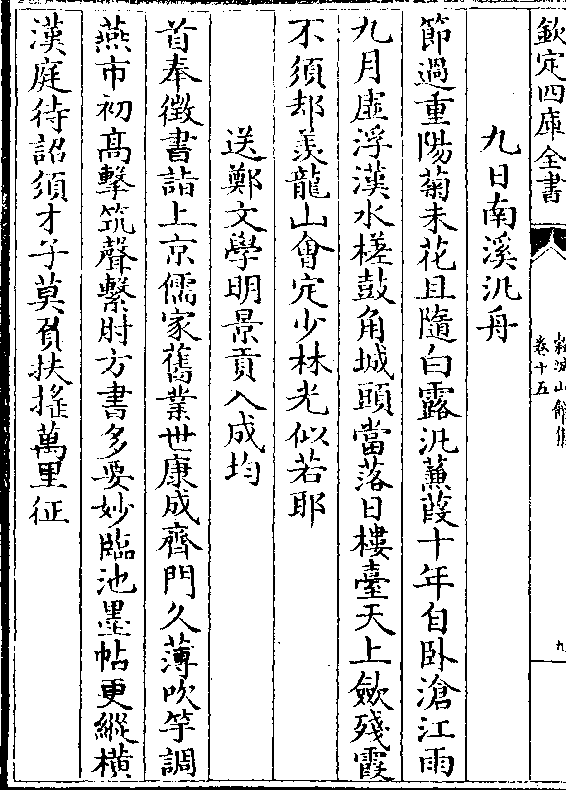 欽定四庫全書
穀城山館集
卷十五
九
九日南溪汎舟
節過重陽菊未花且隨白露汎蒹葭十年自臥滄江雨
九月虛浮漢水槎鼓角城頭當落日樓臺天上斂殘霞
不須却羨龍山會定少林光似若耶
送鄭文學明景貢入成均
首奉徵書詣上京儒家舊業世康成齊門久薄吹竽調
燕市初高擊筑聲繫肘方書多要妙臨池墨帖更縱橫
漢庭待詔須才子莫負扶搖萬里征